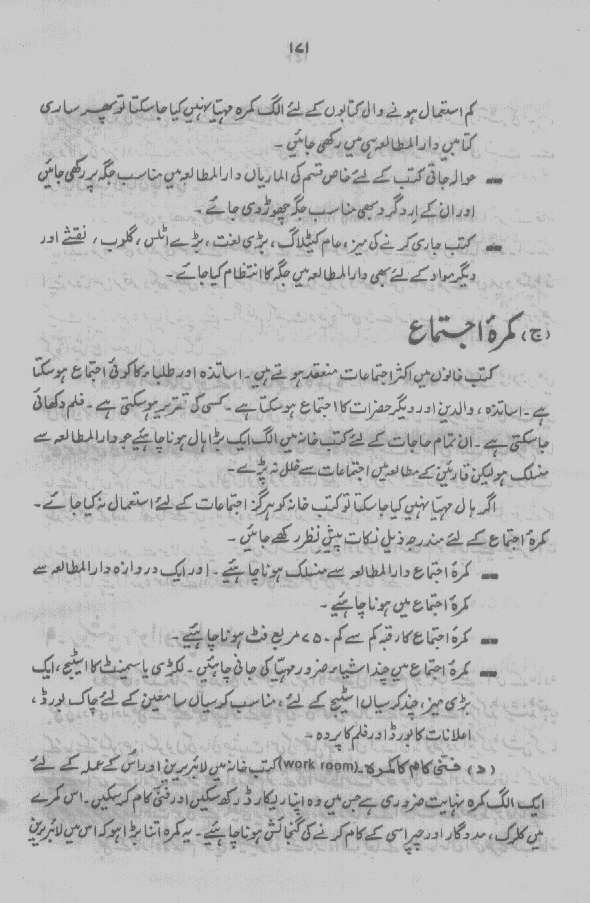 ۱۷۱
کم استعمال ہونے والی کتابوں کے لئے الگ کمرہ مہیا نہیں کیا جاسکتا تو پھر ساری
کتابیں دارالمطالعہ ہی میں رکھی جائیں ۔
ــ حوالہ جاتی کتب کے لئے خاص قسم کی الماریاں دارالمطالعہ میں مناسب جگہ پر رکھی جائیں
اور ان کے اردگرد بھی مناسب جگہ چھوڑ دی جائے ۔
ــ کتب جاری کرنے کی میز ، عام کیٹلاگ ، بڑی لغت ، بڑے اٹلس ، گلوب ، نقشے اور
دیگر مواد کے لئے بھی دارالمطالعہ میں جگہ کا انتظام کیا جائے ۔
(ج) کمرۂ اجتماع
کتب خانوں میں اکثر اجتماعات منعقد ہوتے ہیں ۔ اساتذہ اور طلباء کا کوئی اجتماع ہوسکتا
ہے ۔ اساتذہ ، والدین اور دیگر حضرات کا اجتماع ہوسکتا ہے ۔ کسی کی تقریر ہوسکتی ہے ۔ فلم دکھائی
جاسکتی ہے ۔ ان تمام حاجات کے لئے کتب خانہ میں الگ ایک بڑا ہال ہونا چاہئیے جو دارالمطالعہ سے
منسلک ہو لیکن قارئین کے مطالعہ میں اجتماعات سے خلل نہ پڑے ۔
اگر ہال مہیا نہیں کیا جاسکتا تو کتب خانہ کو ہرگز اجتماعات کے لئے استعمال نہ کیا جائے ۔
کمرۂ اجتماع کے لئے مندرجہ ذیل نکات پیش نظر رکھے جائیں ۔
ــ کمرۂ اجتماع دارالمطالعہ سے منسلک ہونا چاہئیے ۔ اور ایک دروازہ دارالمطالعہ سے
کمرۂ اجتماع میں ہونا چاہئیے ۔
ــ کمرۂ اجتماع کا رقبہ کم سے کم ۷۵۰ مربع فٹ ہونا چاہئیے ۔
ــ کمرۂ اجتماع میں چند اشیاء ضرور مہیا کی جانی چاہئیں ۔ لکڑی یا سیمنٹ کا اسٹیج ، ایک
بڑی میز ، چند کرسیاں اسٹیج کے لئے ، مناسب کرسیاں سامعین کے لئے چاک بورڈ ،
اعلانات کا بورڈ اور فلم کا پردہ ۔
(د) فنی کام کا کمرہ ۔ (work room) کتب خانہ میں لائبریرین اور اُس کے عملہ کے لئے
ایک الگ کمرہ نہایت ضروری ہے جس میں وہ اپنا ریکارڈ رکھ سکیں اور فنی کام کرسکیں ۔ اس کمرے
میں کلرک ، مددگار اور چپراسی کے کام کرنے کی گنجائش ہونا چاہئیے ۔ یہ کمرہ اتنا بڑا ہو کہ اس میں لائبریرین